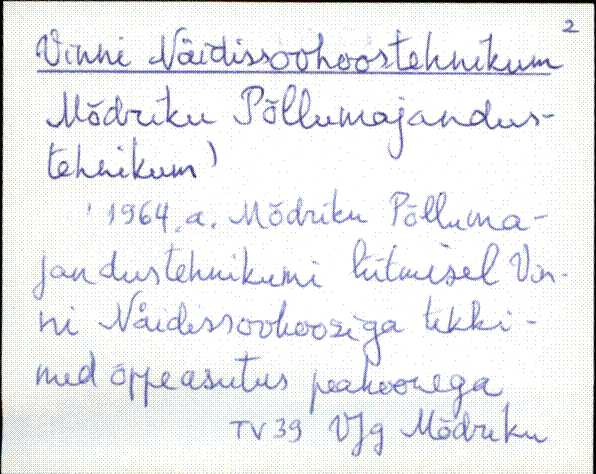 2
Vinni Näidissovhoostehnikum
Mõdriku Põllumajandus-
tehnikum)
1964. a. Mõdriku Põlluma-
jandustehnikumi liitmisel Vin-
ni Näidissovhoosiga tekki-
nud õppeasutus peahoonega
TV 39 VJg Mõdriku